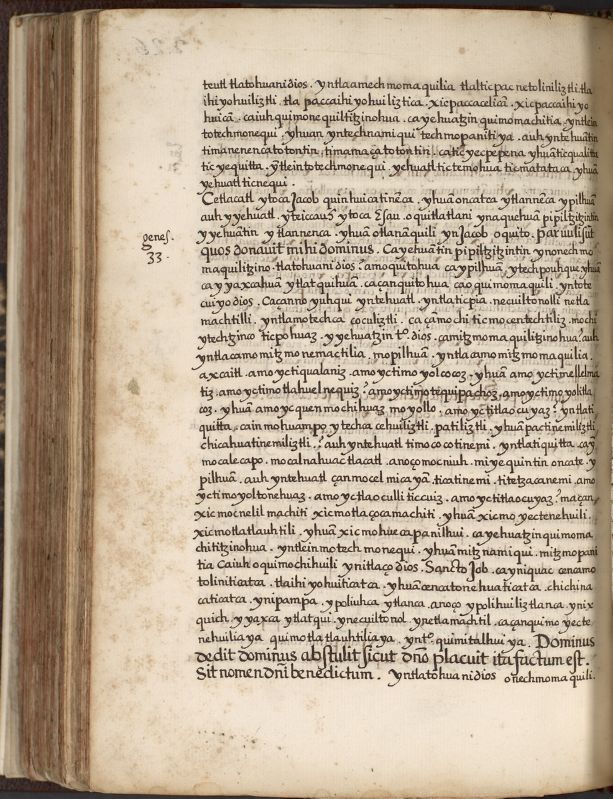 teutl tlatohuani dios. yntla amech momaquilia tlalticpac netoliniliztli. tla
ihiyohuiliztli. tla paccaihiyohuiliztica. xicpaccacelicā. xicpaccaihiyo
huicā. ca iuh quimonequiltitzinohua. ca yehuatzin quimomachitia. yntlein
totechmonequi. yhuan yntechnamiqui techmopanitiya. auh yntehuātin
timanenencatotontin. timamaçatotontin. catle yecpepena yhuā tlequalitta
tic yequitta. ỹtlein totechmonequi. yehuatl tictemohua ticmatataca. yhuā
yehuatl ticnequi.
Cetlacatl ytoca Jacob quinhuicatineca. yhuā oncatca ytlannēca ypilhuā
auh yyehuatl. yteiccauh ytoca Esau. oquitlatlani ynaquehuā pipiltzitzintin
yyehuātin ytlannenca. yhuā otlanāquili yn Jacob oquito. parvuli sūt
quos donavit mihi dominus. Ca yehuātin pipiltzitzintin ynonechmo
genes.
33.
maquilitzino. tlatohuani dios. amoquitohua ca ypilhuā, ytechpouhque yhuā
ca yyaxcahuā ytlatquihuā. caçanquitohua caoquimomaquili. yntote
cuiyo dios. Caçanno yuhqui yntehuatl. yntlaticpia. necuiltonolli netla
machtilli. yntlamotechca çoculiztli. ca çamochi ticmocentechtiliz. mochi
ytechtzinco ticpohuaz. yyehuatzin tᵒ. dios. camitzmomaquilitzinohua. auh
yntlacamo mitzmonemactilia. mopilhuan. yntlacamo mitzmomaquilia.
axcaitl. amo yctiqualaniz. amo yctimoyolcocoz. yhuā amo yctinellelma
tiz. amo yctimotlahuelnequiz. amo yctimotequipachoz. amo yctimoyoltla
coz. yhuā amo ycquenmochihuaz moyollo. amo yctitlaocuyaz. yntlati
quitta. cain mohuampo ytechca cehuiliztli. patiliztli. yhuā pactinemiliztli
chicahuatinemiliztli. auh yntehuatl timococotinemi. yntlatiquitta. caỹ
mocalecapo. mocalnahuac tlacatl. anoço mocniuh. miyequintin oncate. y
pilhuā. auh yntehuatl çanmocel micayā. ticatinemi. titetzacanemi. amo
yctimoyoltonehuaz. amo yctlaoculli ticcuiz. amo yctitlaocuyaz. maçan
xicmocnelilmachiti xicmotlaçocamachiti. yhuā xicmoyectenehuili.
xicmotlatlauhtili. yhuā xicmohuecapanilhui. ca yehuatzin quimoma
chititzinohua. yntlein motechmonequi. yhuā mitznamiqui. mitzmopani
tia. Ca iuh oquimochihuili ynitlaço dios. Sancto Job. ca yniquac cencamo
tolinitiatca. tlaihiyohuiticatca. yhuā cencatonehuaticatca. chichina
caticatca. ynipampa. ypoliuhca ytlanca. anoço ypolihuiliztlanca. ynix
quich. yyaxca ytlatqui. ynecuiltonol ynetlamachtil. caçanquimoyecte
nehuiliaya quimotlatlauhtiliaya. yntᵒ. quimitalhuiaya. Dominus
dedit dominus abstulit sicut dño placuit ita factum est.
Sit nomen dñi benedictum. yntlatohuani dios onechmomaquili.